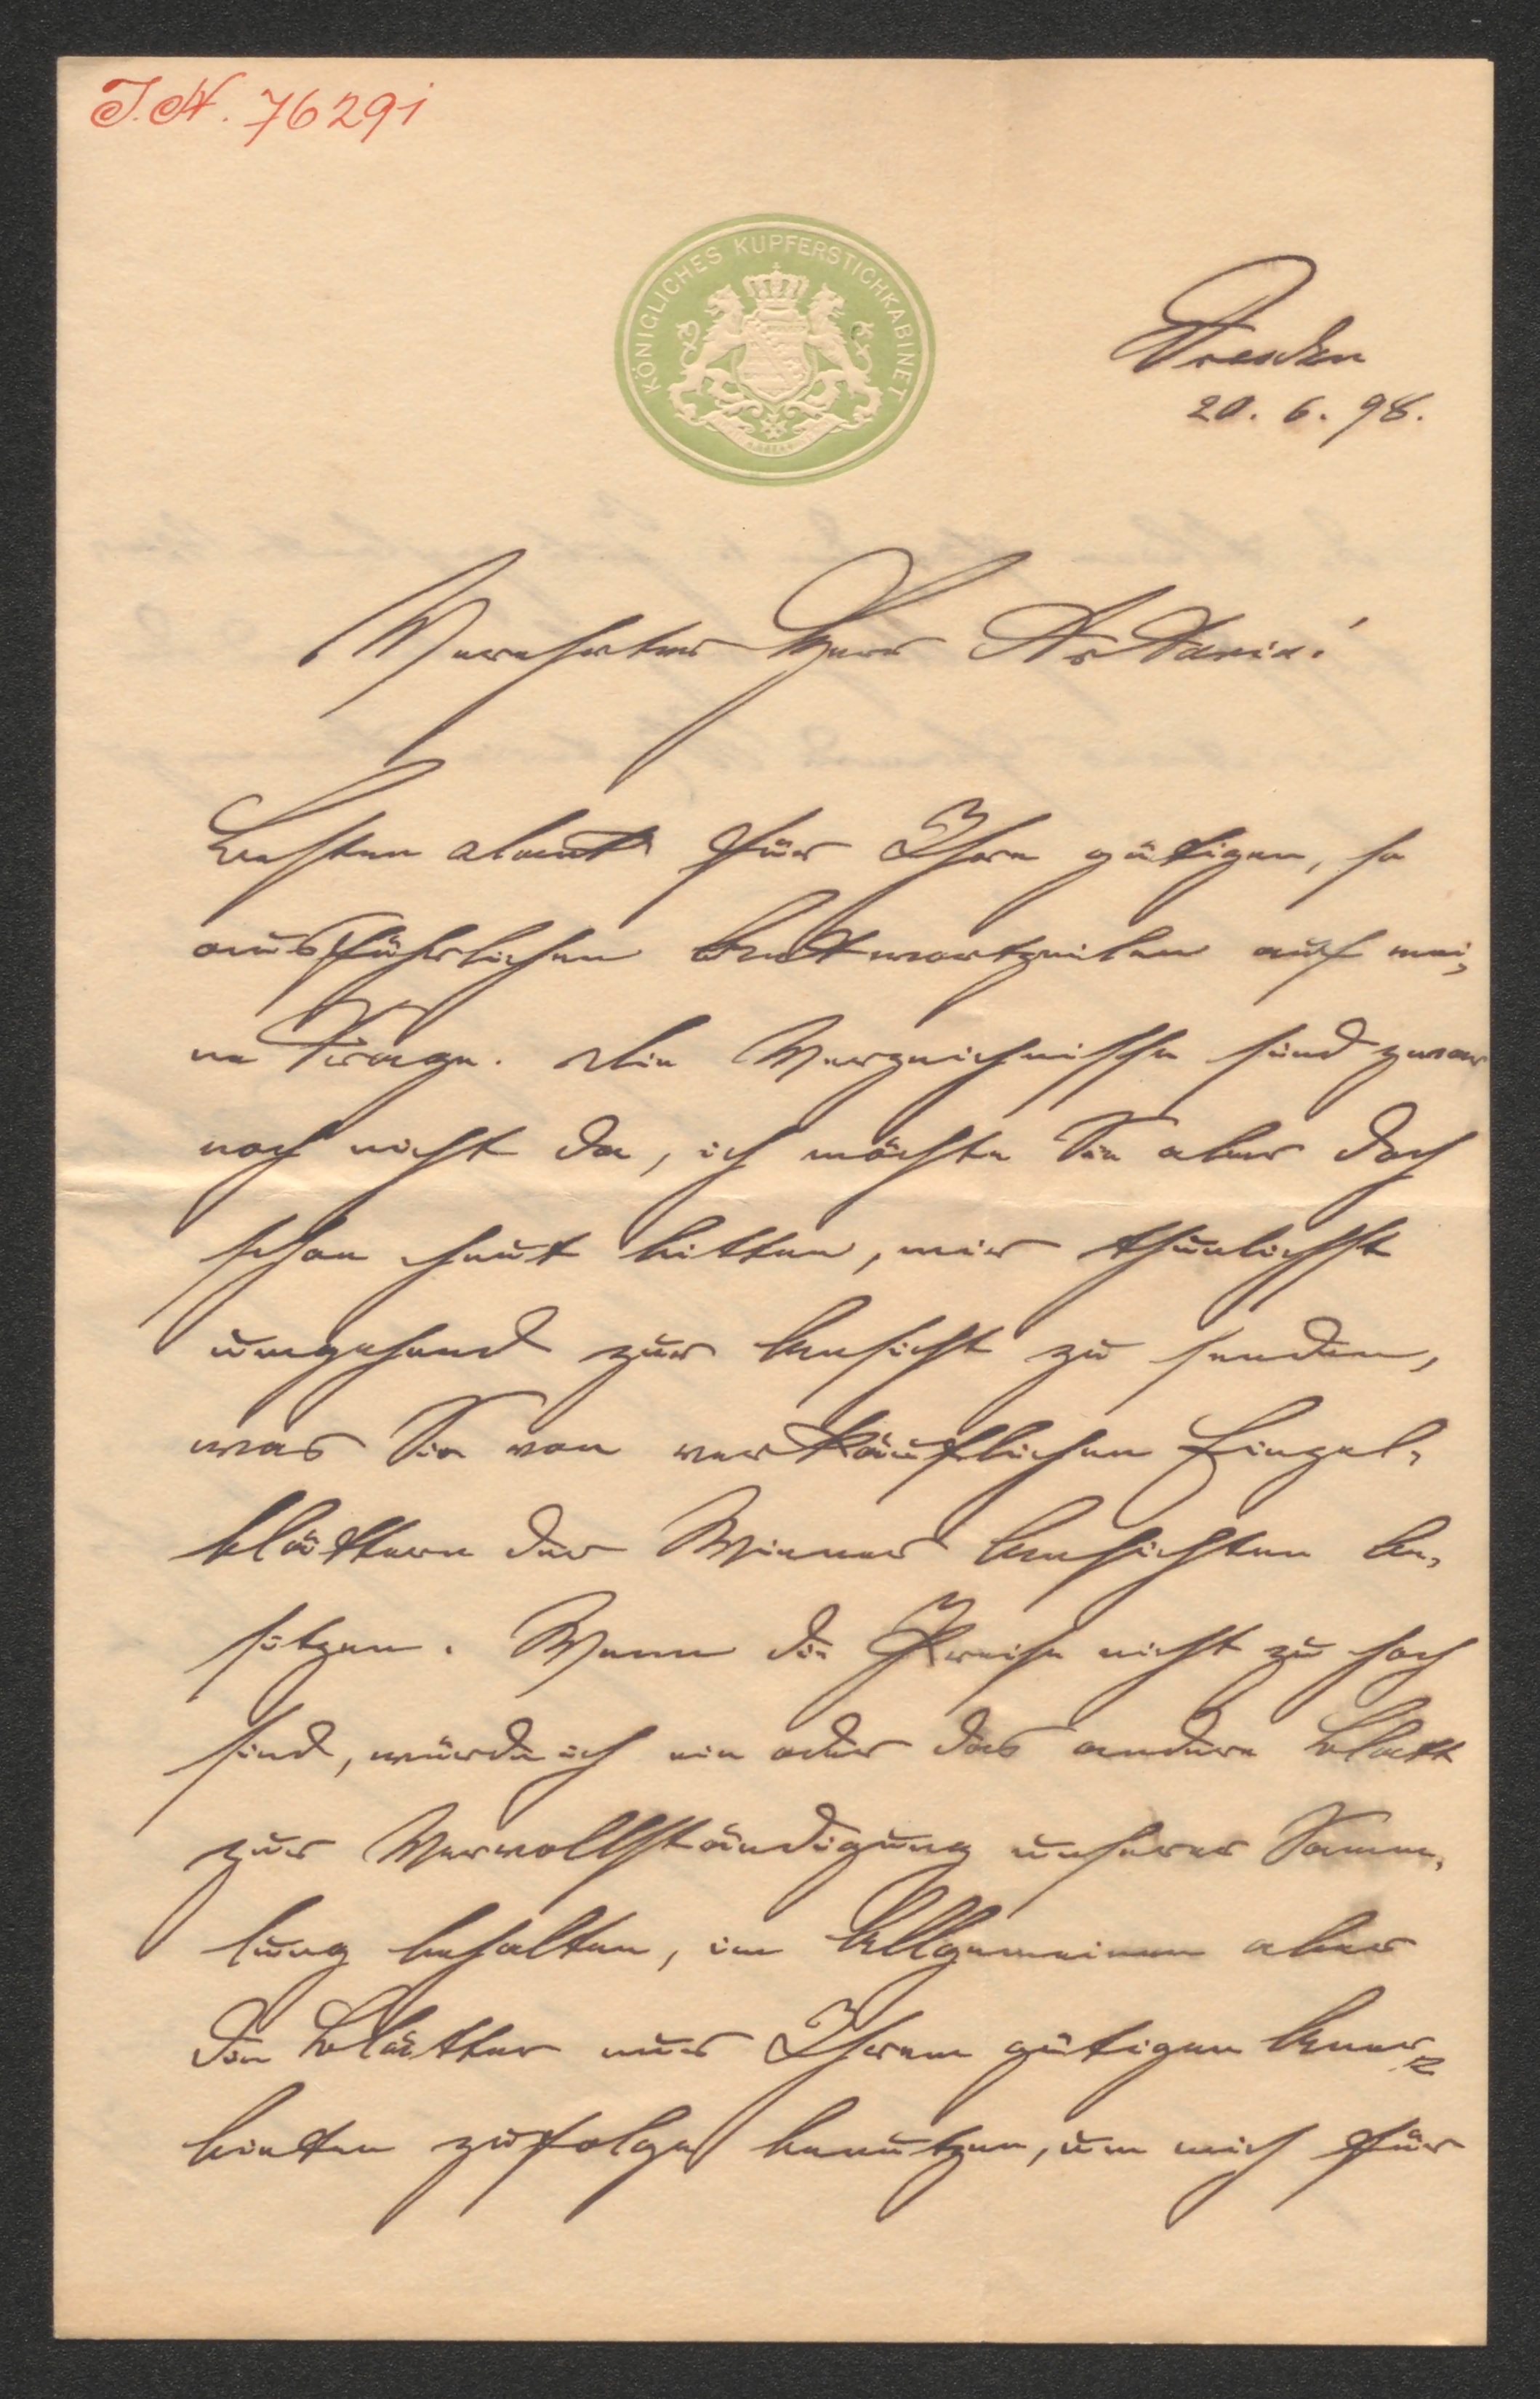 J.N. 76291
KÖNIGLICHES KUPFERSTICHKABINET
Dresden
20. 6. 98.
Verehrter Herr Artaria!
Besten Dank für Ihre gütigen, so
ausführlichen Antwortzeilen auf mei-
ne Frage. Die Verzeichnisse sind zwar
noch nicht da, ich möchte Sie aber doch
schon heut bitten, mir thunlichst
umgehend zur Ansicht zu senden,
was Sie von verkäuflichen Einzel-
blättern der Wiener Ansichten be-
sitzen. Wenn die Preise nicht zu hoch
sind, würde ich ein oder das andere Blatt
zur Vervollständigung unserer Samm-
lung behalten, im Allgemeinen aber
die Blätter nur Ihrem gütigen Aner-
bieten zufolge benutzen, um mich für